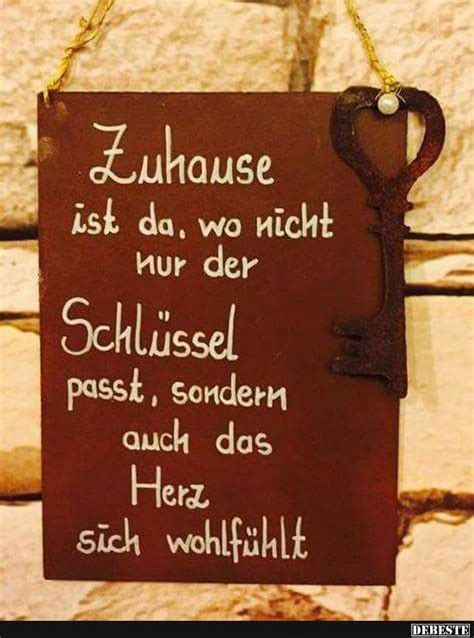 Zuhause
ist da, wo nicht
nur der
Schlüssel
passt, sondern
auch das
Herz
sich wohlfühlt
DEBESTE